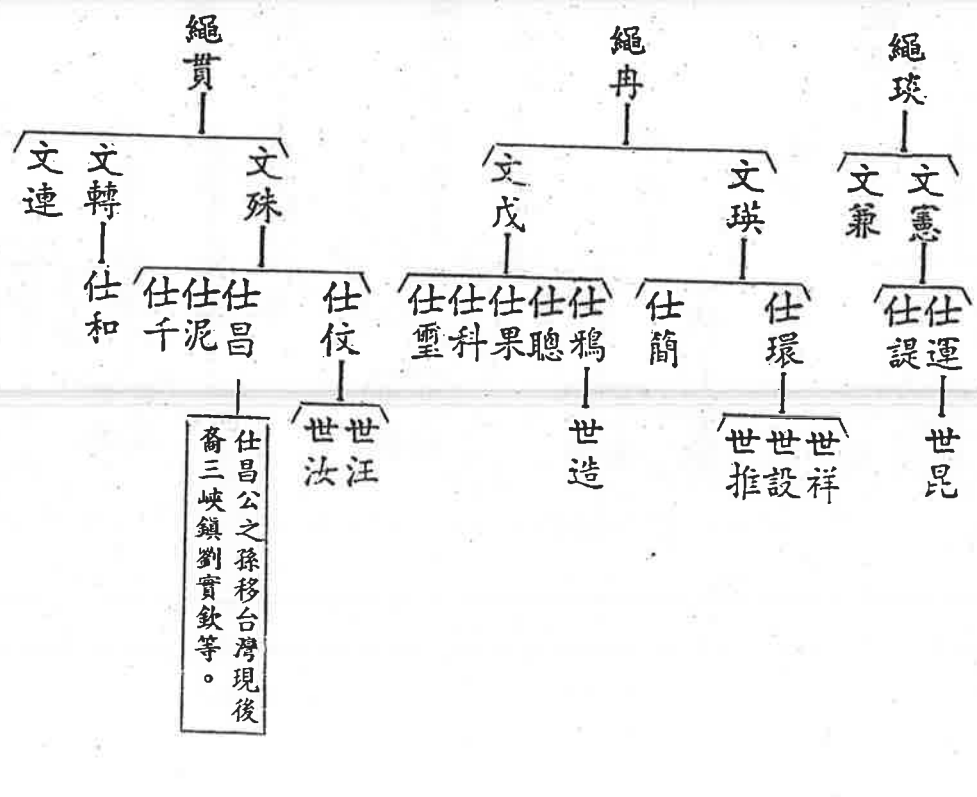 繩琰
文憲
文兼
仕運
仕諟
世昆
繩冉
文瑛
文戊
仕環
仕簡
世祥
世設
世推
仕鴉
仕聰
仕果
仕科
仕璽
世造
繩貫
文殊
文轉
文連
仕伩
仕昌
仕泥
仕千
仕和
世汪
世汝
仕昌公之孫移台灣現後
裔三峽鎮劉實欽等。